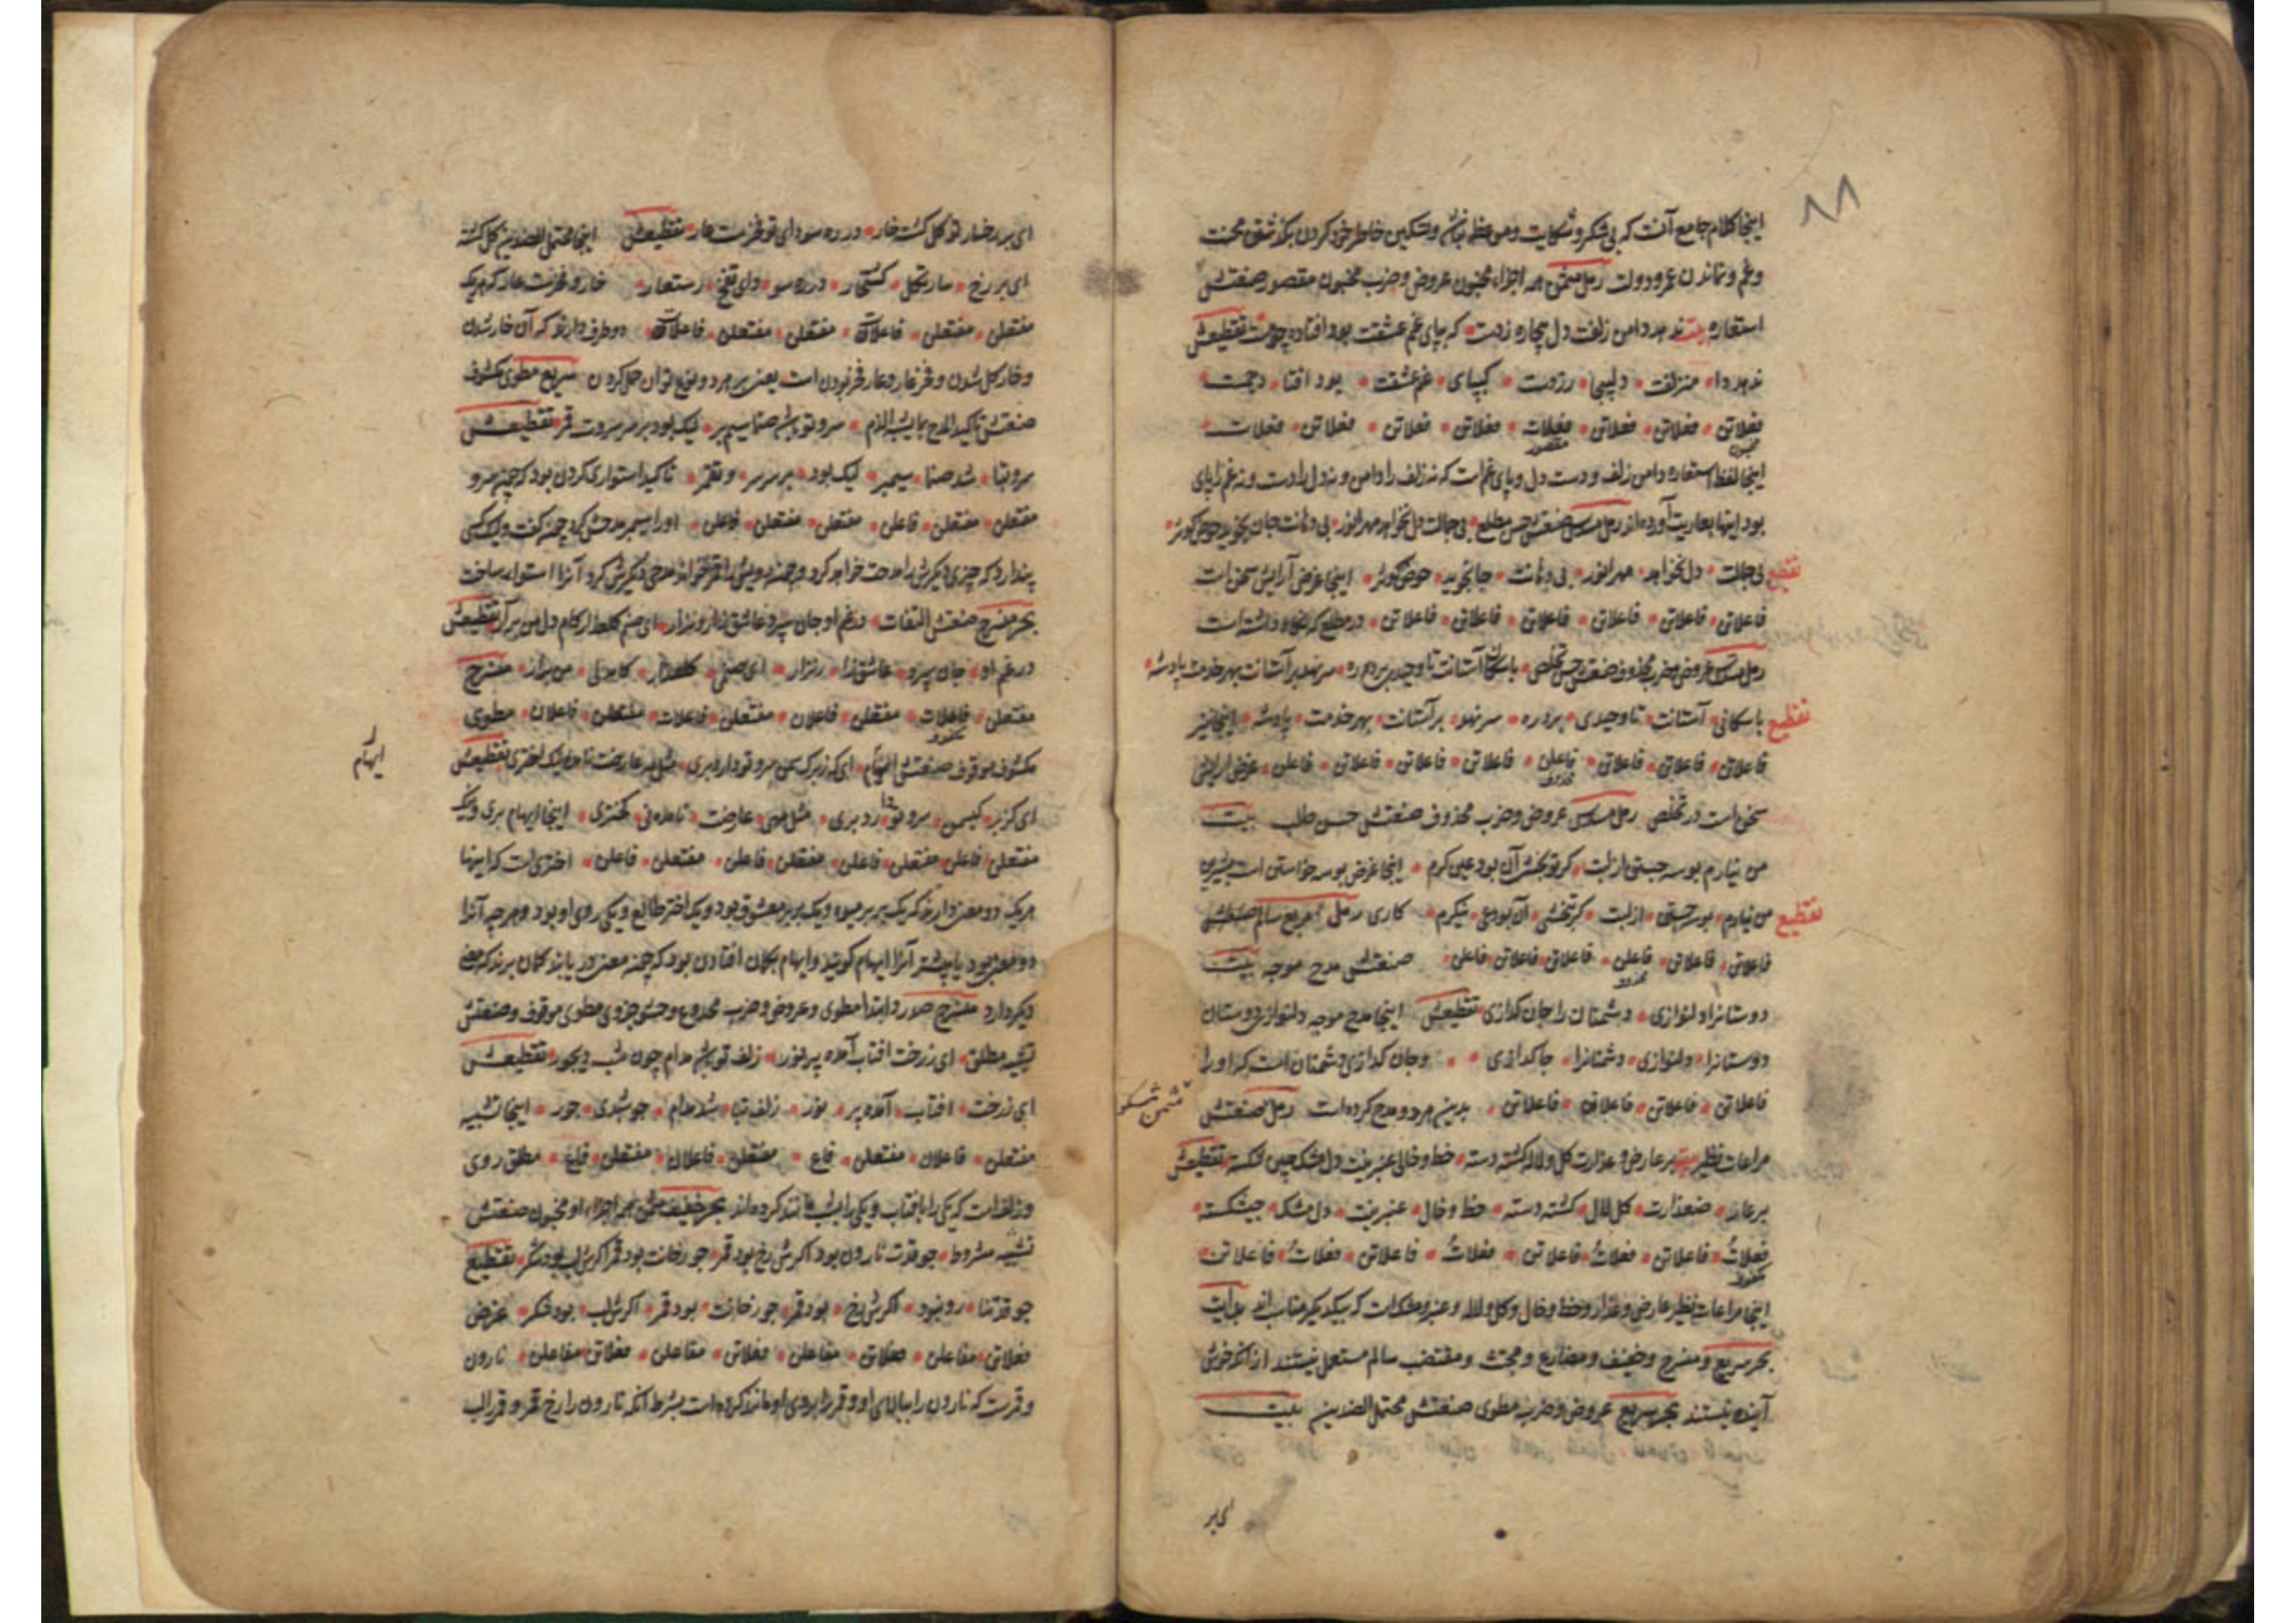 ۸۸
اینجا کلام جامع آنست که بی شکر و شکایت و موعظه زبان و تسکین خاطر خود کردن بر گذشتن محنت
و غم و نماندن عمر و دولت رمل مثمن همه اجزاء مخبون عروض و ضرب مخبون مقصور صنعتش
استعاره بیت ندهد دامن زلفت دل بیچاره زدست که بپای غم عشقت بود افتاده چو مست تقطیعش
ندهد دا منزلفت دلبیچا رزدست کبپای غم عشقت بود افتا دچمست
فعلاتن فعلاتن فعلاتن فعلات فعلاتن فعلاتن فعلاتن فعلات
مخبون مقصور
اینجا لفظ استعاره دامن زلف و دست دل و پای غم است که نه زلف را دامن و نه دل را دست و نه غم را پای
بود اینها بعاریت آورده اند رمل مسدس صنعتش حسن مطلع بی جمالت دل نخواهد مهر انور بی دهانت جان نجوید حوض کوثر
تقطیع بی جمالت دل نخواهد مهر انور بی دهانت جانجوید حوض کوثر اینجا غرض آرایش سخن است
فاعلاتن فاعلاتن فاعلاتن فاعلاتن فاعلاتن فاعلاتن در مطلع که نگاه داشته است
رمل مسدس عروض و ضرب محذوف صنعتش حسن تخلص باسگان آستانت تا وحیدی برد ره سر نهد بر آستانت بهر خدمت پادشه
تقطیع باسکانی آستانت تا وحیدی برد ره سر نهد بر آستانت بهر خدمت پادشه اینجا نیز
فاعلاتن فاعلاتن فاعلاتن فاعلن فاعلاتن فاعلاتن فاعلاتن فاعلن غرض آرایش
محذوف
سخن است در تخلص رمل مسدس عروض و ضرب محذوف صنعتش حسن طلب بیت
من نیارم بوسه جستن از لبت گر تو بخشی آن بود عین کرم اینجا غرض بوسه خواستن است بشیرین
تقطیع من نیارم بوسه جستن از لبت گرتبخشی آن بودعی نیکرم کاری رمل مربع سالم صنعتش
فاعلاتن فاعلاتن فاعلن فاعلاتن فاعلاتن فاعلن صنعتش مدح موجه بیت
محذوف
دوستانرا دلنوازی دشمنان را جان گدازی تقطیعش اینجا مدح موجه دلنوازی دوستان
دوستانرا دلنوازی دشمنانرا جاگدازی و جان گدازی دشمنان است که او را
فاعلاتن فاعلاتن فاعلاتن فاعلاتن بدین هر دو مدح کرده است رمل صنعتش
مثمن مشکول
مراعات نظیر بیت بر عارض و عذارت گل و لاله گشته دسته خط و خال عنبرینت دل مشک چین شکسته تقطیعش
بر عار ضعذارت گل لال گشته دسته خط و خال عنبرینت دل مشک چیشکسته
فعلاتُ فاعلاتن فعلاتُ فاعلاتن فعلاتُ فاعلاتن فعلاتُ فاعلاتن
مشکول
اینجا مراعات نظیر عارض و عذار و خط و خال و گل و لاله و عنبر و مشک است که بیکدیگر مناسب اند بدانت
بحر سریع و منسرح و خفیف و مضارع و مجتث و مقتضب سالم مستعمل نیستند از آنکه خوش
آینده نیستند بحر سریع عروض و ضرب مطوی صنعتش محتمل الضدین بیت
ای بر
ای بر رخسار تو گل گشته خار در ره سودای تو فخرست عار تقطیعش اینجا محتمل الضدین گل گشته
ای بر رخ سار تگل گشتخار در ره سو دای تفخ رستعار خار و فخرست عار که هر یک
مفتعلن مفتعلن فاعلات مفتعلن مفتعلن فاعلات دو طرف دارند که آن خار شدن
و خار گل شدن و فخر عار و عار فخر بودن است یعنی بر هر دو نوع توان حمل کردن سریع مطوی مکشوف
صنعتش تاکید المدح بما یشبه الذم سرو تو باشد صنما سیم بر لیک بود بر سر سروت قمر تقطیعش
سروتبا شد صنما سیمبر لیک بود بر سر سر وتقمر تاکید استواری کردن بود که چون سرو
مفتعلن مفتعلن فاعلن مفتعلن مفتعلن فاعلن او را سیمبر مدحش کرد چون گفت و لیک کسی
پندارد که چیزی دیگرش را مدحت خواهد کرد و چون رویش را قمر خواند مدحی دیگرش کرد آنرا استوار ساخت
بحر منسرح صنعتش التفات در غم او جان سپرد عاشق زار و نزار ای صنم گلعذار کام دل من برآر تقطیعش
در غم او جان سپرد عاشق زا رنزار ای صنمی گلعذار کامدلی من برار منسرح
مفتعلن فاعلات مفتعلن فاعلان مفتعلن فاعلات مفتعلن فاعلان مطوی
مکشوف
مکشوف موقوف صنعتش ایهام ای که ز بر کس سرو تو دارد بری مثل مه عارضت نامده نیک اختری تقطیعش
ایهام
ای کزبر کیسمن سروتدا رد بری مثل مهی عارضت نامده نی کختری اینجا ایهام بری و نیک
مفتعلن فاعلن مفتعلن فاعلن مفتعلن فاعلن مفتعلن فاعلن اختری است که اینها
هر یک دو معنی دارند که یک بر بر میوه و یک بر بر معشوق بود و یک اختر طالع و یکی روی او بود و هر چه آنرا
دو معنی بود یا بیشتر آنرا ایهام گویند و ایهام بگمان افتادن بود که چون معنی دریابند گمان برند که معنی
دیگر دارد منسرح صدر و ابتدا مطوی و عروض و ضرب مجدوع و حشو جزوی مطوی موقوف و صنعتش
تشبیه مطلق ای ز رخت افتاب آمده پر نور زلف تو باشد مدام چون شب دیجور تقطیعش
ای زرخت افتاب آمده پر نور زلف تبا شدمدام چوشبدی جور اینجا تشبیه
مفتعلن فاعلان مفتعلن فاع مفتعلن فاعلان مفتعلن فاع مطلق روی
و زلف است که یکی را بافتاب و یکی را بشب مانند کرده اند بحر خفیف مثمن همه اجزاء او مخبون صنعتش
تشبیه مشروط چو قدت نارون بود اگرش رخ بود قمر چو رخانت بود قمر اگرش لب بود شکر تقطیع
چو قدتنا رونبود اگرش رخ بود قمر چو رخانت بود قمر اگرش لب بود شکر غرض
فعلاتن مفاعلن فعلاتن مفاعلن فعلاتن مفاعلن فعلاتن مفاعلن نارون
و قمرست که نارون را ببالای او و قمر را بروی او مانند کرده است بشرط آنکه نارون را رخ قمر و قمر را لب